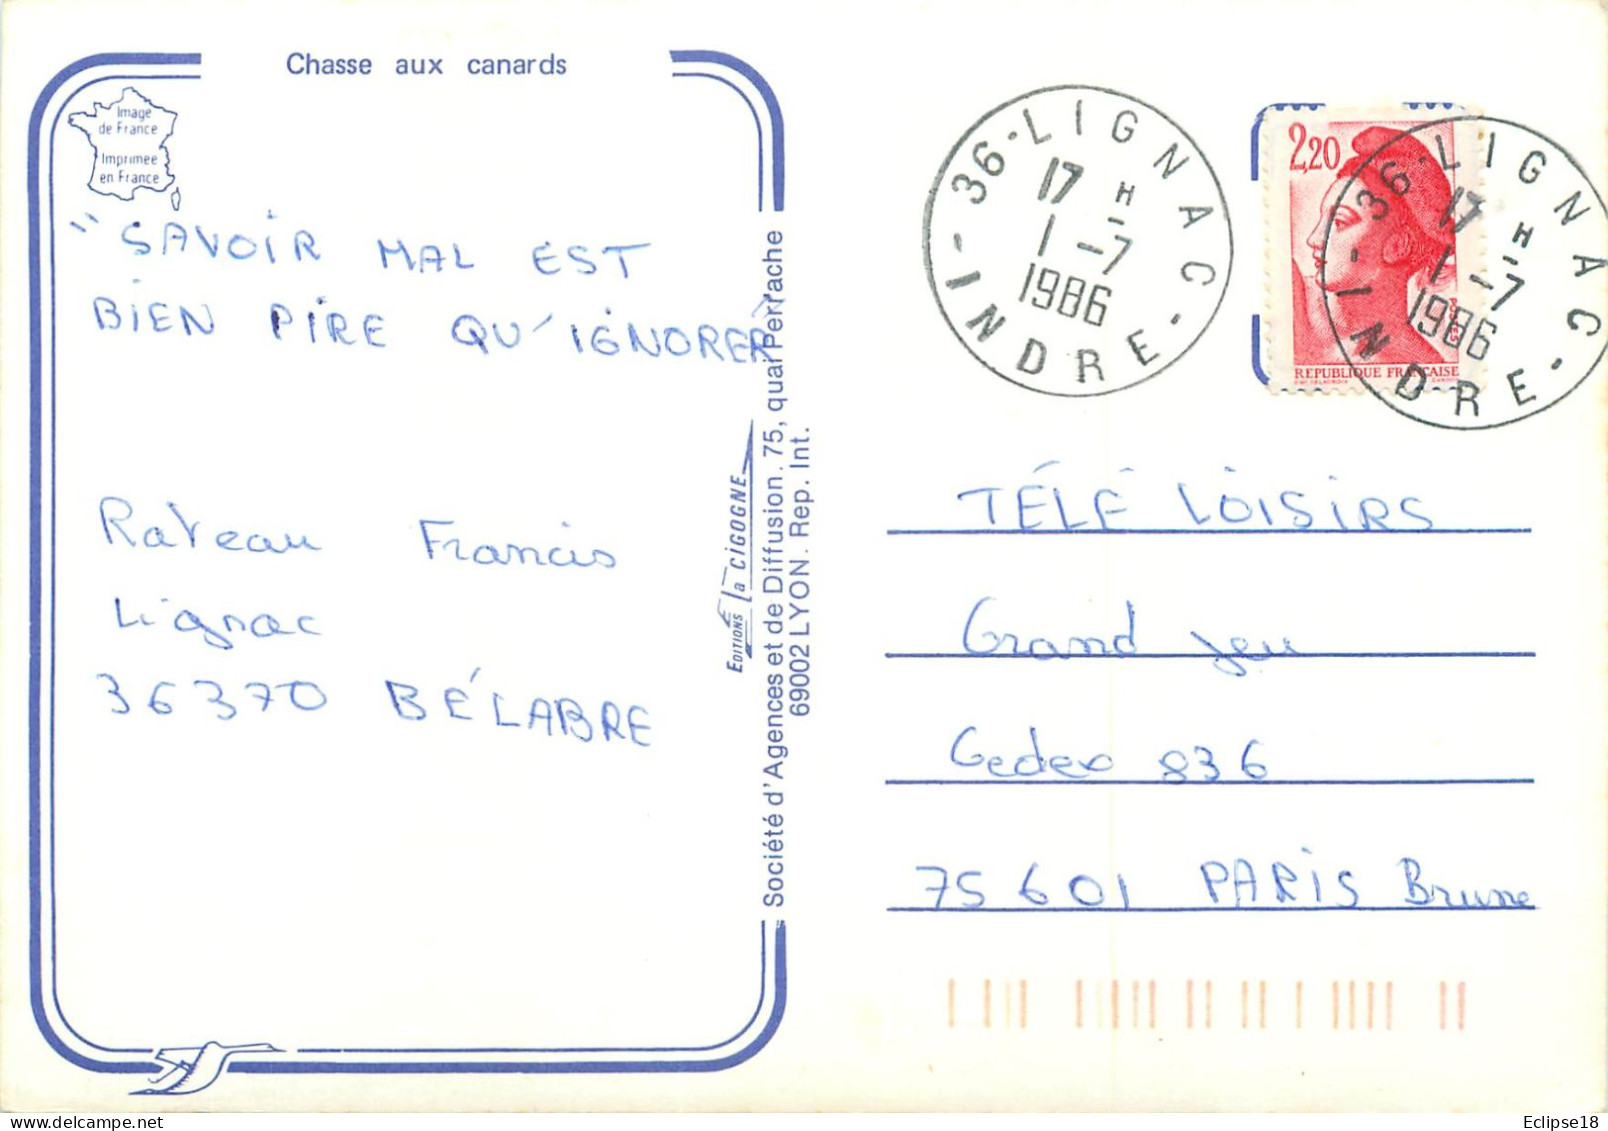 Chasse aux canards
Image
de France
Imprimée
en France
"SAVOIR MAL EST
BIEN PIRE QU'IGNORER"
Rateau Francis
Lignac
36370 BÉLABRE
EDITIONS la CIGOGNE
Société d'Agences et de Diffusion. 75, quai Perrache
69002 LYON. Rep. Int.
36-LIGNAC-INDRE-
17 H
1 -7
1986
2,20
POSTES
REPUBLIQUE FRANÇAISE
36-LIGNAC-INDRE-
17 H
1 -7
1986
TÉLÉ LOISIRS
Grand jeu
Cedex 836
75601 PARIS Brune
Eclipse18